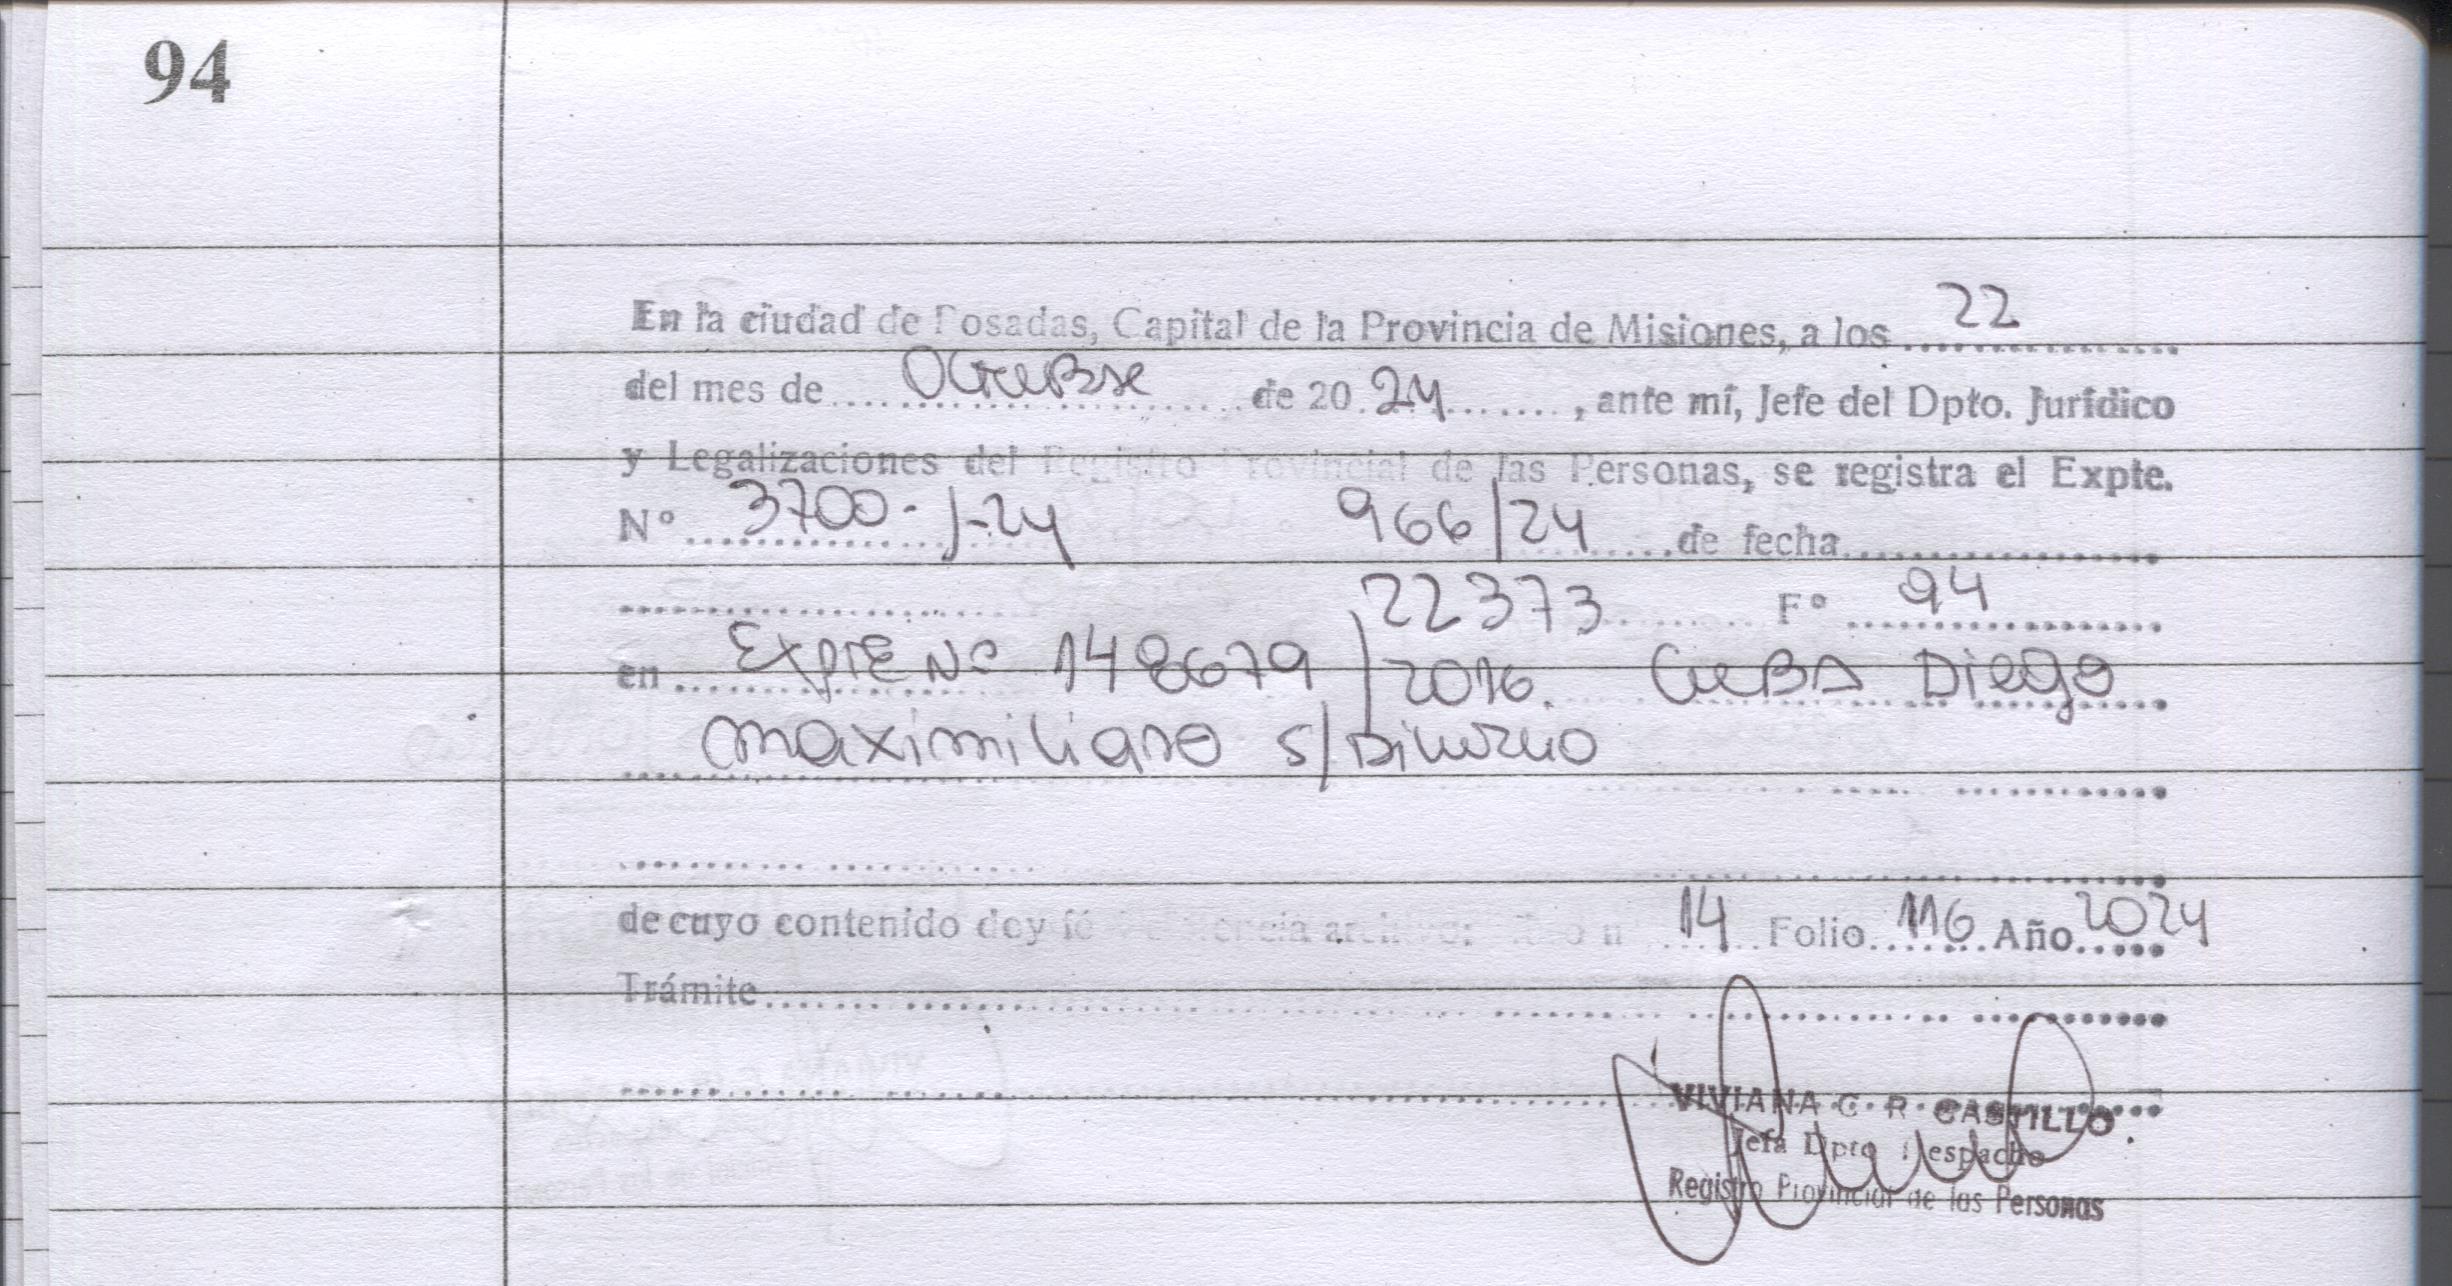 94
En la ciudad de Posadas, Capital de la Provincia de Misiones, a los 22
del mes de Octubre de 20 24, ante mí, Jefe del Dpto. Jurídico
y Legalizaciones del Registro Provincial de las Personas, se registra el Expte.
Nº 3700- J-24 966/24 de fecha
22373 Fº 94
en Expte Nº 148679/2016. CueBA Diego
maximiliano s/Divorcio
de cuyo contenido doy fé 14 Folio 116 Año 2024
Trámite
VIVIANA C. R. CASTILLO
Jefa Dpto. Despacho
Registro Provincial de las Personas